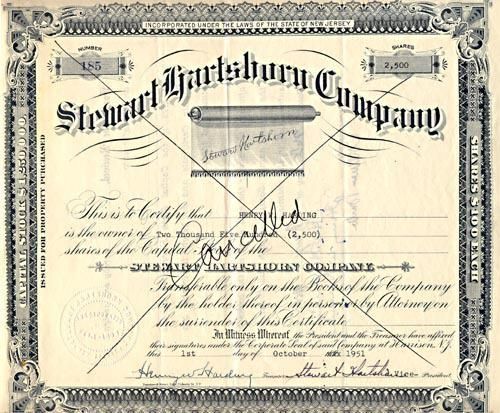 INCORPORATED UNDER THE LAWS OF THE STATE OF NEW JERSEY
NUMBER
185
SHARES
2,500
Stewart Hartshorn Company
Stewart Hartshorn
CAPITAL STOCK
ISSUED FOR PROPERTY PURCHASED
SHARES $100 EACH
This is to Certify that HENRY HARDING
is the owner of Two Thousand Five Hundred (2,500)
shares of the Capital of the
Cancelled
STEWART HARTSHORN COMPANY
Transferable only on the Books of the Company
by the holder thereof in person or by Attorney on
the surrender of this Certificate
In Witness Whereof the President and the Treasurer have affixed
their signatures under the Corporate Seal of said Company at Harrison, N.J.
this 1st day of October 1951
Harding
Stewart Hartshorn